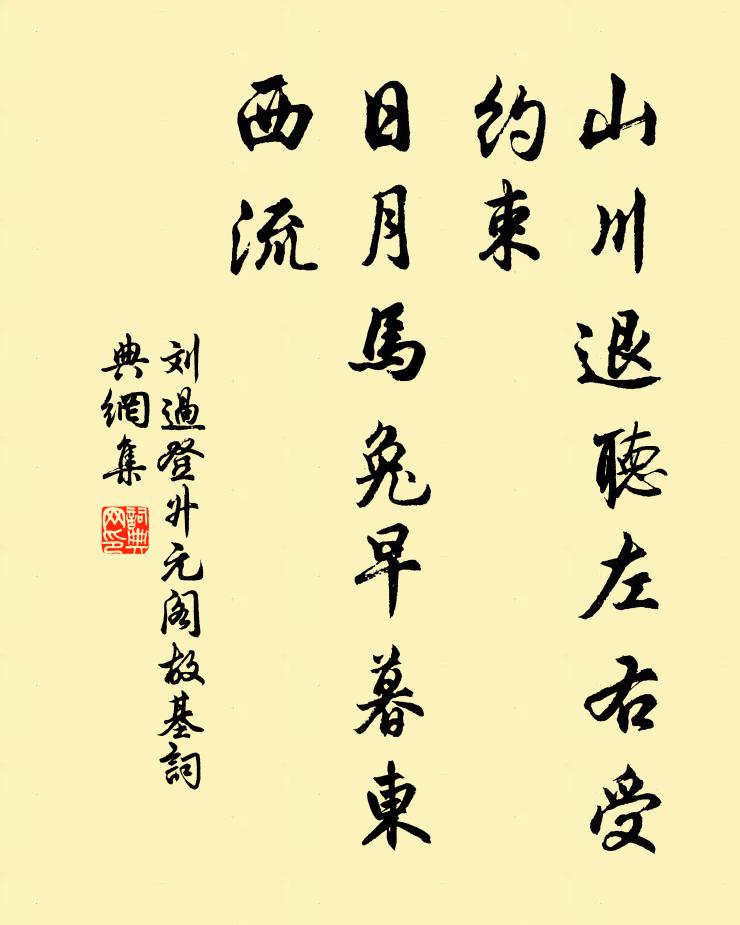 山川退聽左右受
約束
日月馬兔早暮東
西流
刘過登升元阁故基詞
典網集
詞典
网印